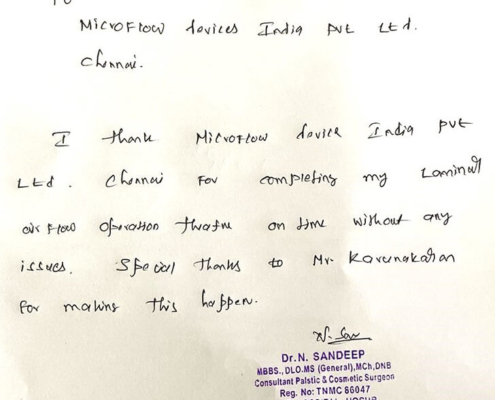 To
MicroFlow devices India Pvt Ltd.
Chennai.
I thank Microflow device India Pvt
Ltd. Chennai for completing my Laminar
air flow operation theatre on time without any
issues. Special thanks to Mr. Karunakaran
for making this happen.
Dr.N. SANDEEP
MBBS., DLO.MS (General),MCh,DNB
Consultant Palstic & Cosmetic Surgeon
Reg. No: TNMC 86047